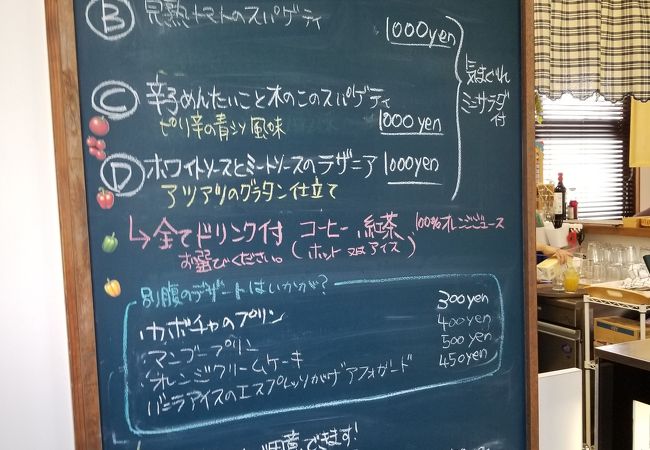 B 完熟トマトのスパゲティ 1000yen
C 辛子めんたいこと木のこのスパゲティ
ピリ辛の青シソ風味 1000yen
気まぐれ
ミニサラダ
付
D ホワイトソースとミートソースのラザニア 1000yen
アツアツのグラタン仕立て
↳全てドリンク付 コーヒー、紅茶 100%オレンジジュース
お選びください。(ホット又はアイス)
別腹のデザートはいかが?
カボチャのプリン 300yen
マンゴープリン 400yen
オレンジクリームケーキ 500yen
バニラアイスのエスプレッソがけ アフォガード 450yen
できます!